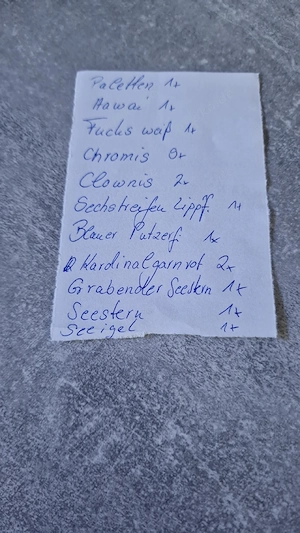 Paletten 1x
Hawai 1x
Fuchs weiß 1x
Chromis 8x
Clownis 2x
Sechstreifen Lippf. 1x
Blauer Putzerf. 1x
Kardinalgarn rot 2x
Grabender Seestern 1x
Seestern 1x
Seeigel 1x